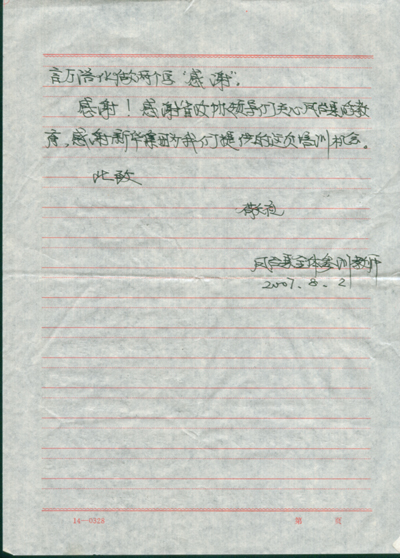 言万语化做两个字“感谢”。
感谢！感谢省政协领导们关心凤台县的教
育，感谢新华集团为我们提供的这次培训机会。
此致
敬礼
凤台县全体参训教师
2007. 8. 2
14—0328
第 页